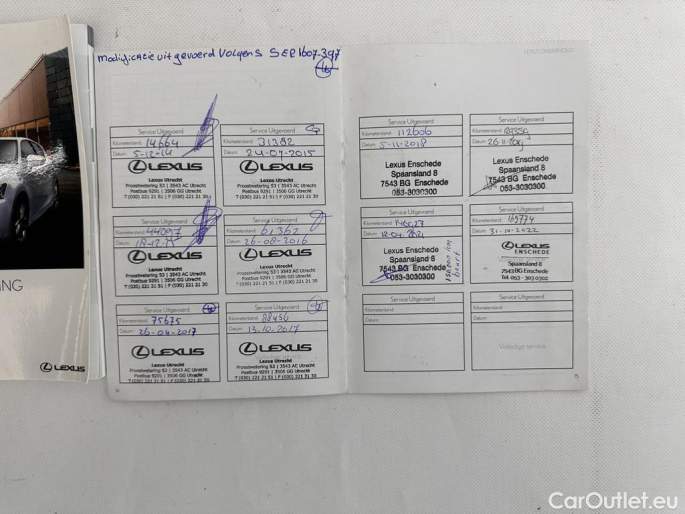 Modificatie uitgevoerd volgens SER1607-397
Service Uitgevoerd
Kilometerstand: 14664
Datum: 5-12-14
LEXUS
Lexus Utrecht
Proostwetering 53 | 3543 AC Utrecht
Postbus 9291 | 3506 GG Utrecht
T (030) 221 21 51 | F (030) 221 21 30
Service Uitgevoerd
Kilometerstand: 31382
Datum: 24-07-2015
LEXUS
Lexus Utrecht
Proostwetering 53 | 3543 AC Utrecht
Postbus 9291 | 3506 GG Utrecht
T (030) 221 21 51 | F (030) 221 21 30
Service Uitgevoerd
Kilometerstand: 44097
Datum:
LEXUS
Lexus Utrecht
Proostwetering 53 | 3543 AC Utrecht
Postbus 9291 | 3506 GG Utrecht
T (030) 221 21 51 | F (030) 221 21 30
Service Uitgevoerd
Kilometerstand: 61362
Datum: 26-08-2016
LEXUS
Lexus Utrecht
Proostwetering 53 | 3543 AC Utrecht
Postbus 9291 | 3506 GG Utrecht
T (030) 221 21 51 | F (030) 221 21 30
Service Uitgevoerd
Kilometerstand: 75675
Datum: 26-04-2017
LEXUS
Lexus Utrecht
Proostwetering 53 | 3543 AC Utrecht
Postbus 9291 | 3506 GG Utrecht
T (030) 221 21 51 | F (030) 221 21 30
Service Uitgevoerd
Kilometerstand: 88456
Datum: 13-10-2017
LEXUS
Lexus Utrecht
Proostwetering 53 | 3543 AC Utrecht
Postbus 9291 | 3506 GG Utrecht
T (030) 221 21 51 | F (030) 221 21 30
Service Uitgevoerd
Kilometerstand: 112606
Datum: 5-11-2018
Lexus Enschede
Spaansland 8
7543 BG Enschede
053-3030300
Service Uitgevoerd
Kilometerstand:
Datum:
Lexus Enschede
Spaansland 8
7543 BG Enschede
053-3030300
Service Uitgevoerd
Kilometerstand:
Datum:
Lexus Enschede
Spaansland 8
7543 BG Enschede
053-3030300
Service Uitgevoerd
Kilometerstand: 169774
Datum: 31-10-2022
LEXUS
ENSCHEDE
Spaansland 8
7543 BG Enschede
Tel. 053 - 303 0300
Service Uitgevoerd
Kilometerstand:
Datum:
Service Uitgevoerd
Kilometerstand:
Datum:
Volledige service
ING
LEXUS
CarOutlet.eu